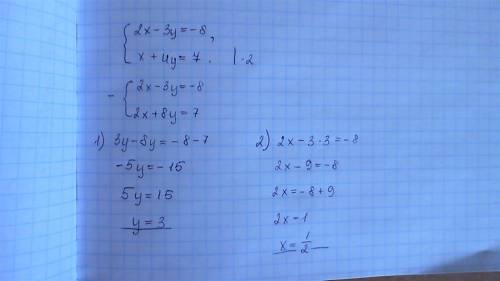 { 2x-3y=-8,
x+4y=7. |·2
- { 2x-3y=-8
2x+8y=7
1) 3y-8y=-8-7
-5y=-15
5y=15
y=3
2) 2x-3·3=-8
2x-9=-8
2x=-8+9
2x=1
x=1/2